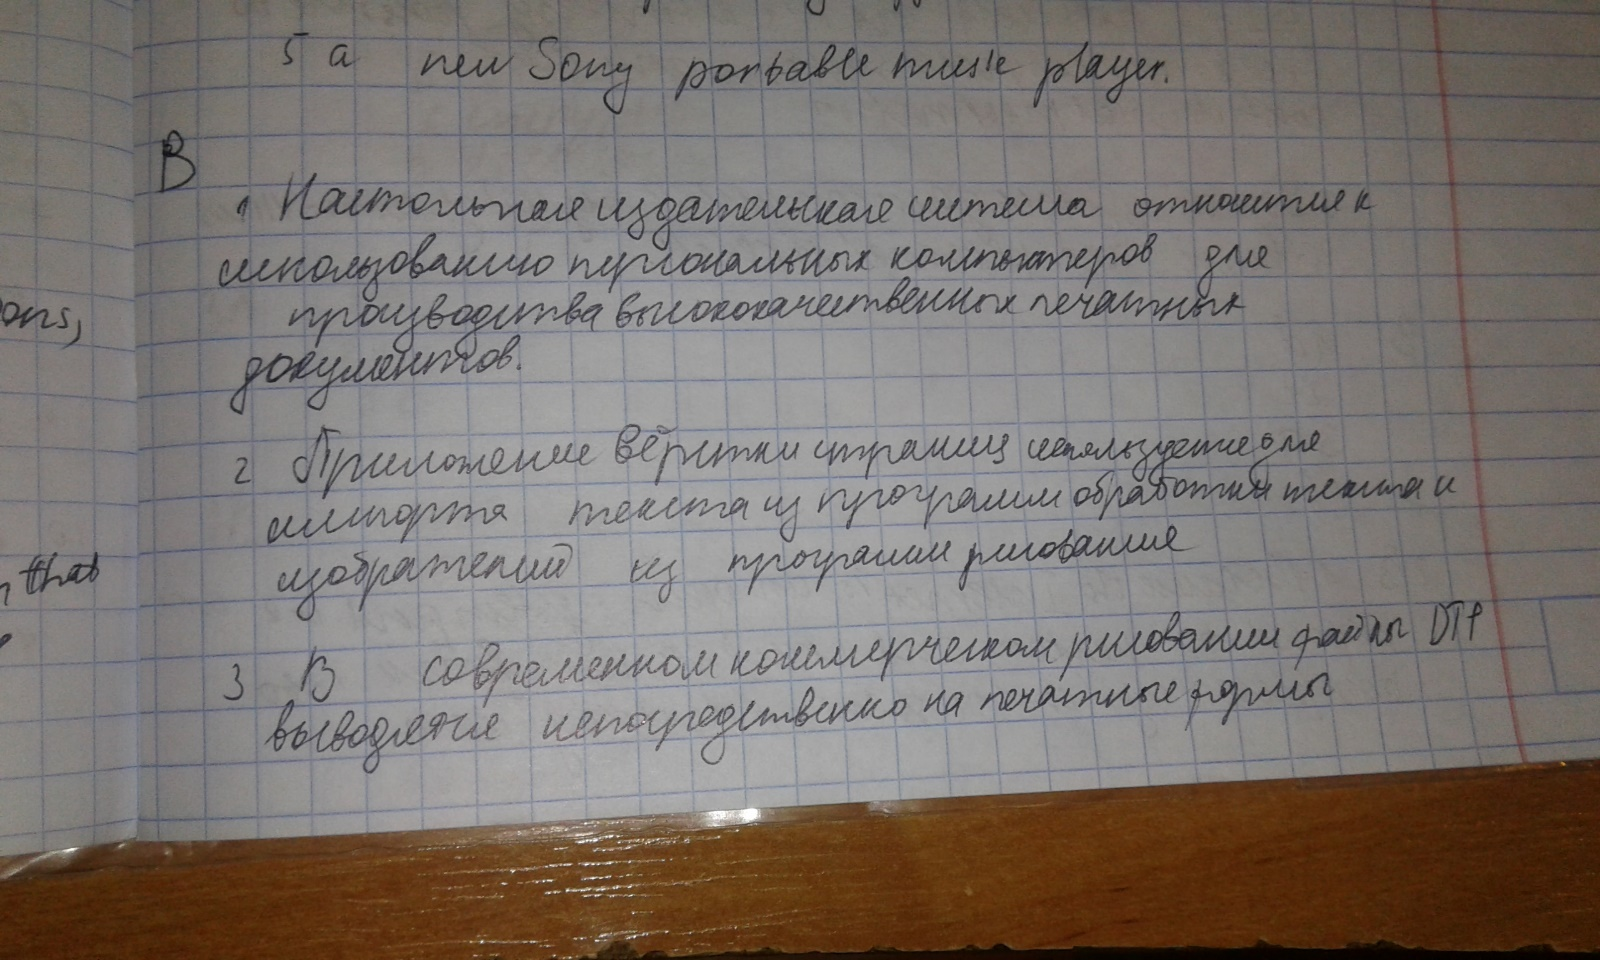 5 a new Sony portable music player.
B
1 Настольная издательская система относится к
использованию персональных компьютеров для
производства высококачественных печатных
документов.
ons,
2 Приложение вёрстки страниц используется для
импорта текста из программ обработки текста и
изображений из программ рисования
that
3 В современном коммерческом рисовании файлы DTP
выводятся непосредственно на печатные формы